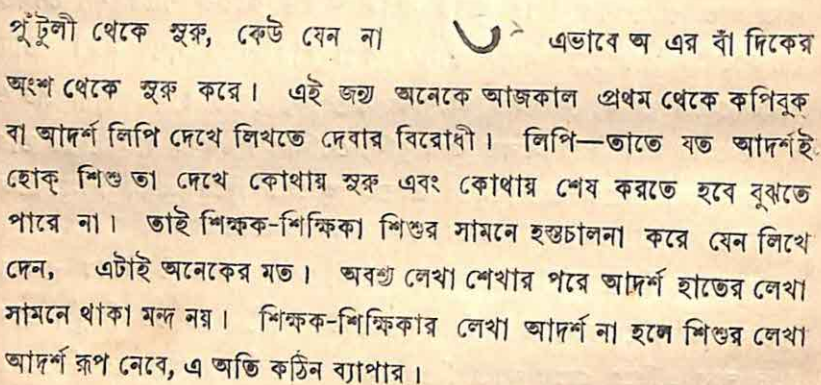 পুঁটুলী থেকে সুরু, কেউ যেন না এভাবে অ এর বাঁ দিকের
অংশ থেকে সুরু করে। এই জন্য অনেকে আজকাল প্রথম থেকে কপিবুক
বা আদর্শ লিপি দেখে লিখতে দেবার বিরোধী। লিপি—তাতে যত আদর্শই
হোক্ শিশু তা দেখে কোথায় সুরু এবং কোথায় শেষ করতে হবে বুঝতে
পারে না। তাই শিক্ষক-শিক্ষিকা শিশুর সামনে হস্তচালনা করে যেন লিখে
দেন, এটাই অনেকের মত। অবশ্য লেখা শেখার পরে আদর্শ হাতের লেখা
সামনে থাকা মন্দ নয়। শিক্ষক-শিক্ষিকার লেখা আদর্শ না হলে শিশুর লেখা
আদর্শ রূপ নেবে, এ অতি কঠিন ব্যাপার।